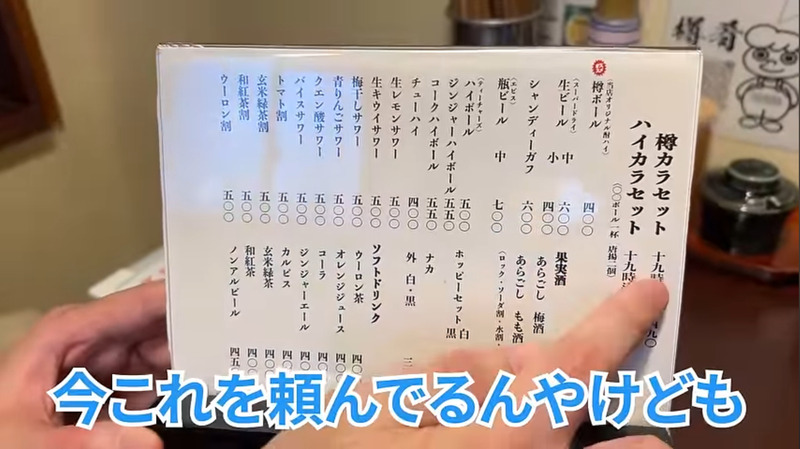 樽肴
樽カラセット 十九時
ハイカラセット 十九時
(〇〇ボール一杯 唐揚二個)
(当店オリジナル酎ハイ)
樽ボール 四〇〇
(スーパードライ)
生ビール 中 六〇〇
小 四〇〇
シャンディーガフ 六〇〇
(エビス)
瓶ビール 中 七〇〇
(ティーチャーズ)
ハイボール 五〇〇
ジンジャーハイボール 五五〇
コークハイボール 五五〇
チューハイ 四〇〇
生レモンサワー 五〇〇
生キウイサワー 五〇〇
梅干しサワー 五〇〇
青りんごサワー 五〇〇
クエン酸サワー 五〇〇
バイスサワー 五〇〇
トマト割 五〇〇
玄米緑茶割 五〇〇
和紅茶割 五〇〇
ウーロン割 五〇〇
果実酒
あらごし 梅酒
あらごし もも酒
(ロック・ソーダ割・水割・
ホッピーセット 白
黒
ナカ
外 白・黒
ソフトドリンク
ウーロン茶
オレンジジュース
コーラ
ジンジャーエール
カルピス
玄米緑茶
和紅茶
ノンアルビール
今これを頼んでるんやけども